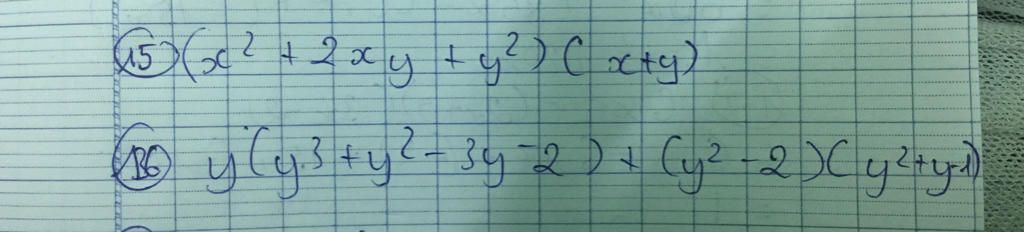 15 (x² + 2xy + y²)(x+y)
16 y(y³ + y² - 3y - 2) + (y² - 2)(y² + y - 1)